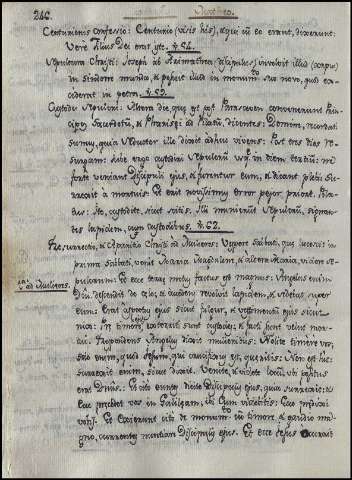 246.
Centurionis confessio: Centurio (visis his), & qui cu eo erant, dixerunt:
Vere filius Dei erat iste. ¶.54.
Sepultura Christi: Joseph ab Arimathea (discipulus) involvit illud (corpus)
in sindone munda, & posuit illud in monumto suo novo, quod exciderat
in petra. ¶.59.
Custodes Sepulcri: Altera die, quæ est post Parasceven convenerunt Principes
Sacerdotũ, & Pharisæi ad Pilatũ, dicentes: Domine, recordati
sumus, quia seductor ille dixit adhuc vivens: Post tres dies resurgam:
jube ergo custodiri sepulcrũ usq. in diem tertiũ: ne
forte veniant discipuli ejus, & furentur eum, & dicant plebi: surrexit
a mortuis: & erit novissimus error pejor priore. Pilatus:
Ite, custodite, sicut scitis. Illi munierunt sepulcrũ, signantes
lapidem, cum custodibus. ¶.62.
Resurrectio, & Apparitio Christi ad Mulieres: Vespere Sabbati, quæ lucescit in
prima Sabbati, venit Maria Magdalene, & altera Maria, videre sepulcrum:
Et ecce terræ motus factus est magnus: Angelus enim
Dni. descendit de cælo, & accedens revolvit lapidem, & sedebat super
eum: Erat aspectus ejus sicut fulgur, & vestimentũ ejus sicut
nix: Præ timore exterriti sunt custodes, & facti sunt velut mortui.
Respondens Angelus dixit mulieribus: Nolite timere vos,
scio enim, quod Jesum, qui crucifixus est, quæritis: Non est hic:
surrexit enim, sicut dixit. Venite, & videte locũ, ubi positus
erat Dnus. Et cito euntes dicite Discipulis ejus, quia surrexit: &
ecce præcedet vos in Galilæam, ibi Eum videbitis: Ecce prædixi
vobis. Et exierunt cito de monumto cũ timore, & gaudio magno,
currentes nuntiare Discipulis ejus. Et ecce Jesus occurrit
ad Mulieres.